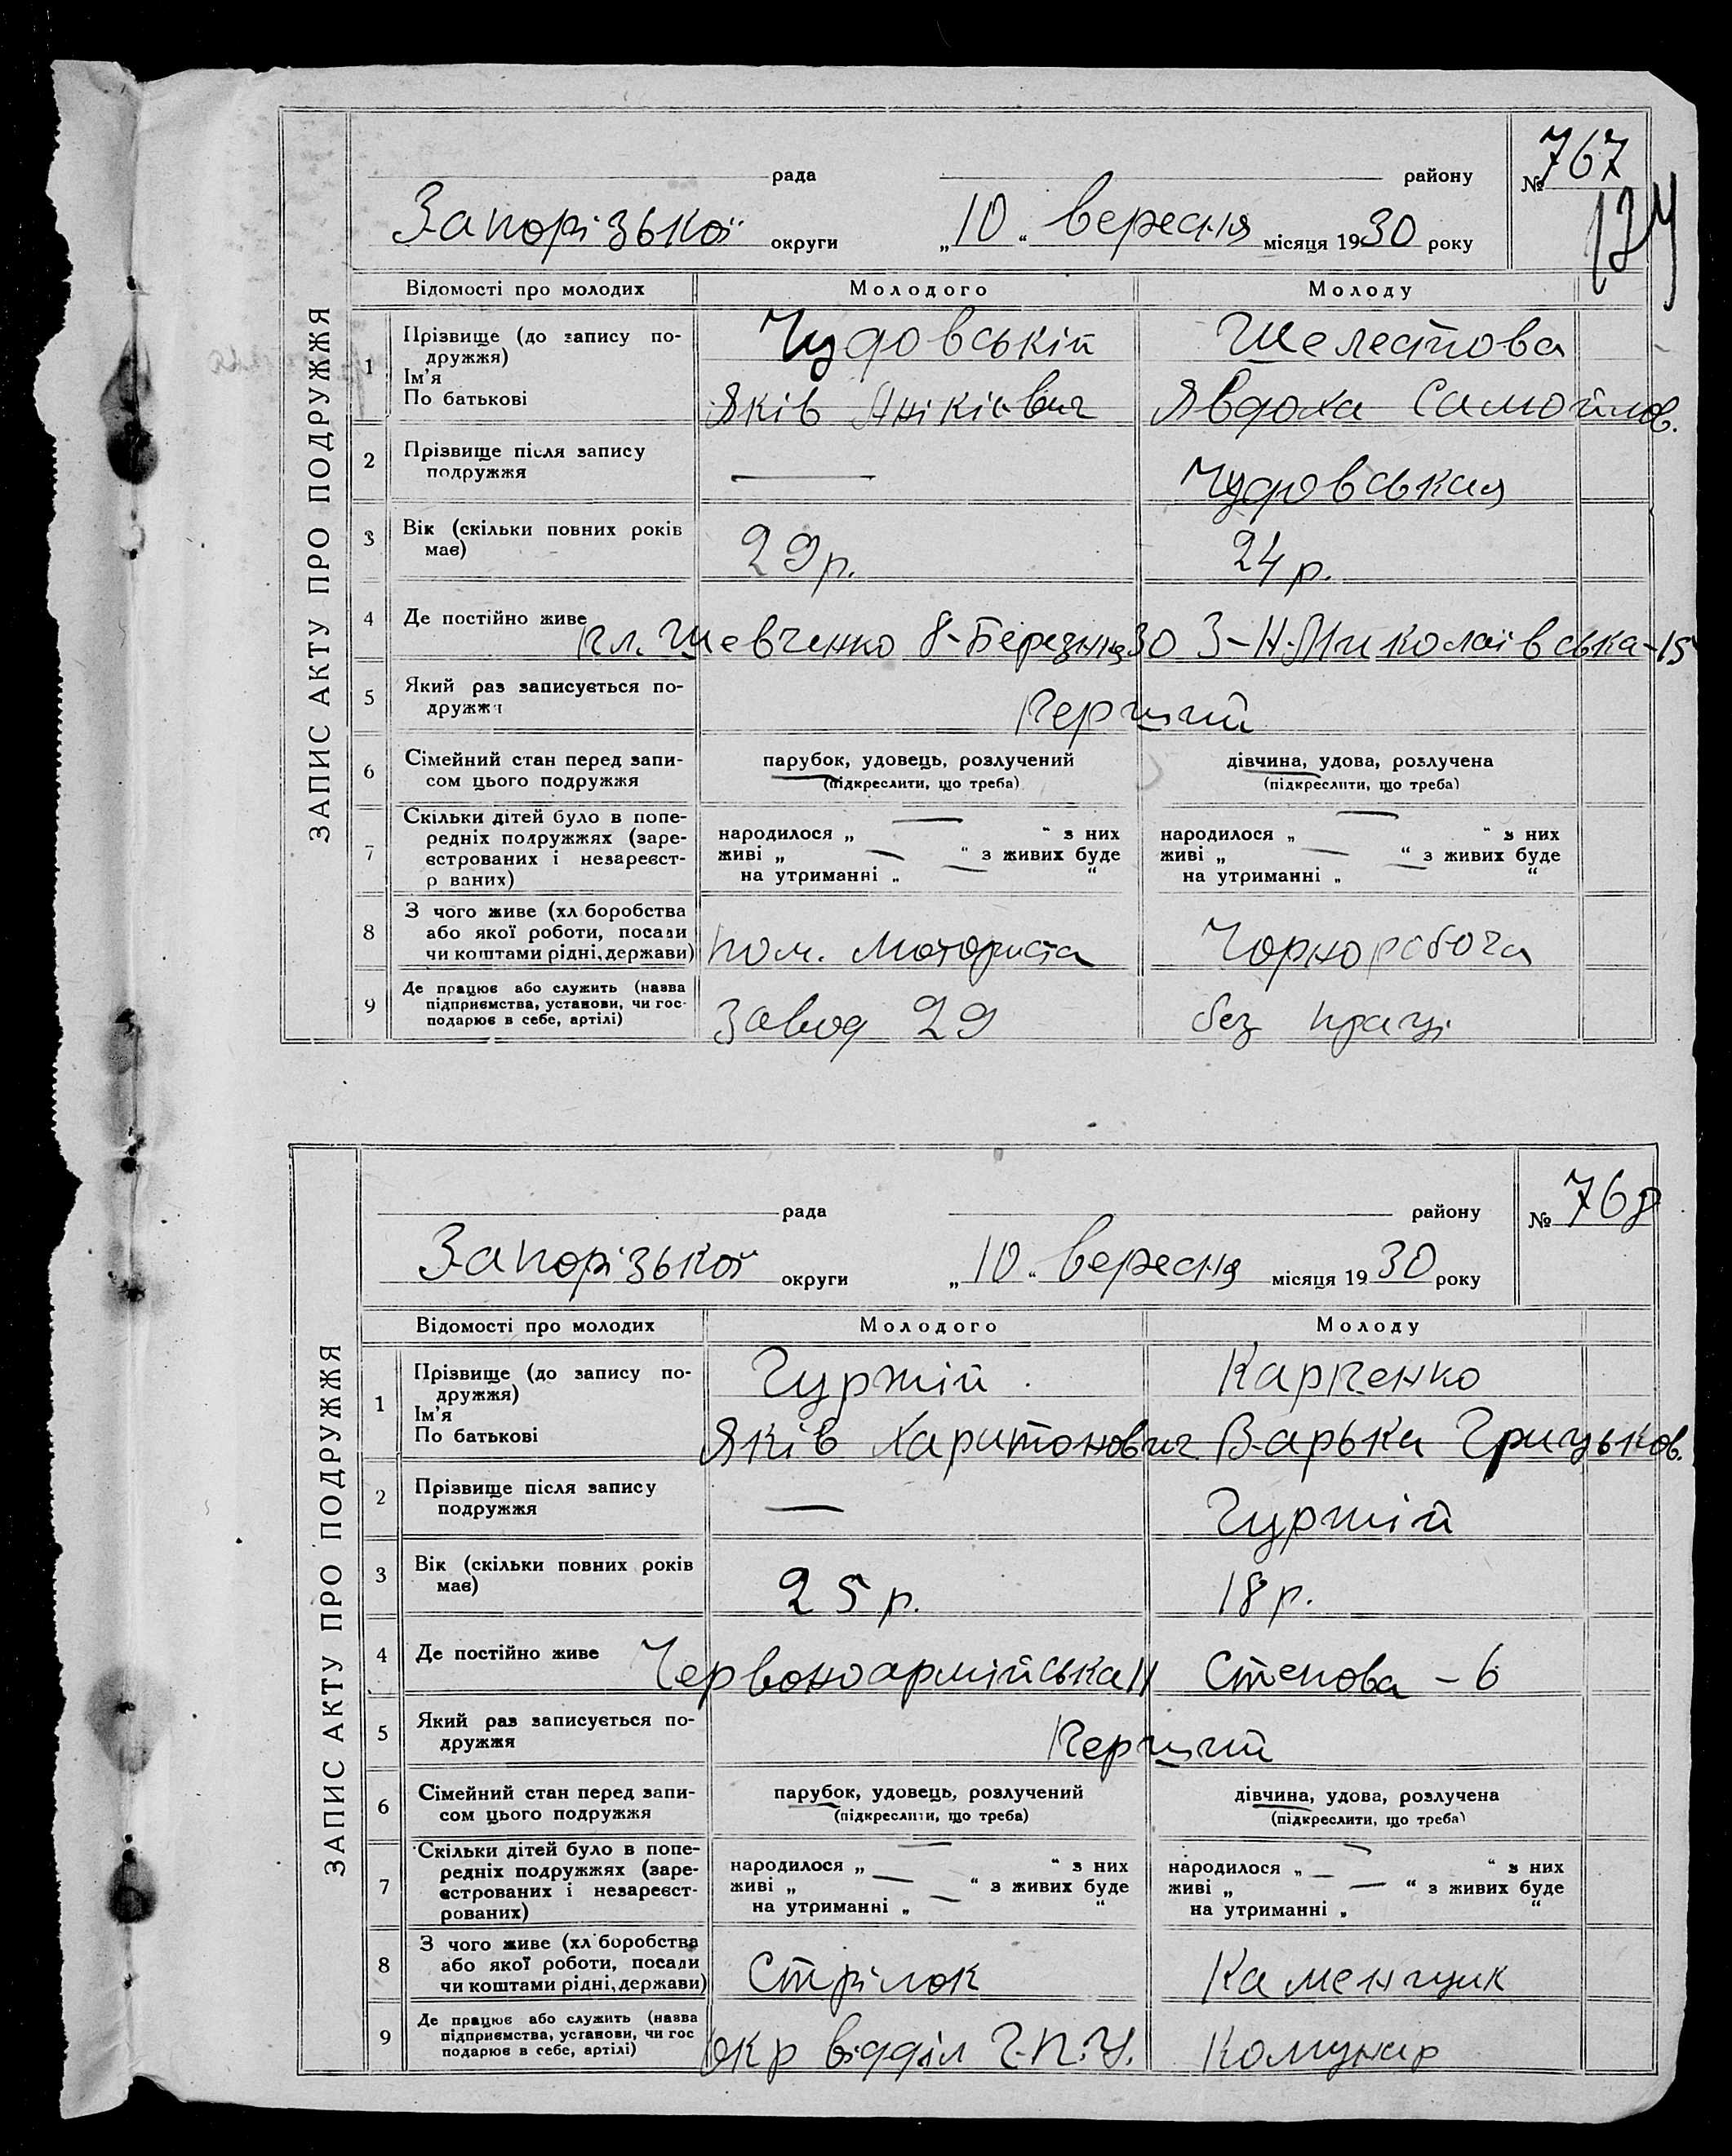 ЗАПИС АКТУ ПРО ПОДРУЖЖЯ
рада району № 767
134
Запорізької округи „10“ вересня місяця 1930 року
Відомості про молодих Молодого Молоду
1 Прізвище (до запису по- Чудовській Шелестова
дружжя)
Ім'я
По батькові Яків Анікієвич Явдоха Самойлов.
2 Прізвище після запису
подружжя — Чудовськая
3 Вік (скільки повних років
має) 29р. 24р.
4 Де постійно живе пл. Шевченко 8-Березня 30 3-Н-Миколаівська-15
5 Який раз записується по-
дружжя Перший
6 Сімейний стан перед запи- парубок, удовець, розлучений дівчина, удова, розлучена
сом цього подружжя (підкреслити, що треба) (підкреслити, що треба)
7 Скільки дітей було в попе-
редніх подружжях (заре- народилося „ — “ з них народилося „ — “ з них
єстрованих і незареєст- живі „ — “ з живих буде живі „ — “ з живих буде
р ваних) на утриманні „ — “ на утриманні „ — “
8 З чого живе (хл боробства
або якої роботи, посади
чи коштами рідні, держави) пом. моториста Чорноробоча
9 Де працює або служить (назва
підприємства, установи, чи гос-
подарює в себе, артілі) Завод 29 без праці
ЗАПИС АКТУ ПРО ПОДРУЖЖЯ
рада району № 768
Запорізької округи „10“ вересня місяця 1930 року
Відомості про молодих Молодого Молоду
1 Прізвище (до запису по- Гуржій Карпенко
дружжя)
Ім'я
По батькові Яків Харитонович Варька Грицьков.
2 Прізвище після запису
подружжя — Гуржій
3 Вік (скільки повних років
має) 25р. 18р.
4 Де постійно живе Червоноармійська 11 Степова - 6
5 Який раз записується по-
дружжя Перший
6 Сімейний стан перед запи- парубок, удовець, розлучений дівчина, удова, розлучена
сом цього подружжя (підкреслити, що треба) (підкреслити, що треба)
7 Скільки дітей було в попе-
редніх подружжях (заре- народилося „ — “ з них народилося „ — “ з них
єстрованих і незареєст- живі „ — “ з живих буде живі „ — “ з живих буде
рованих) на утриманні „ — “ на утриманні „ “
8 З чого живе (хл боробства
або якої роботи, посади
чи коштами рідні, держави) Стрілок Каменщик
9 Де працює або служить (назва
підприємства, установи, чи гос
подарює в себе, артілі) окр відділ Г.П.У. Комунар